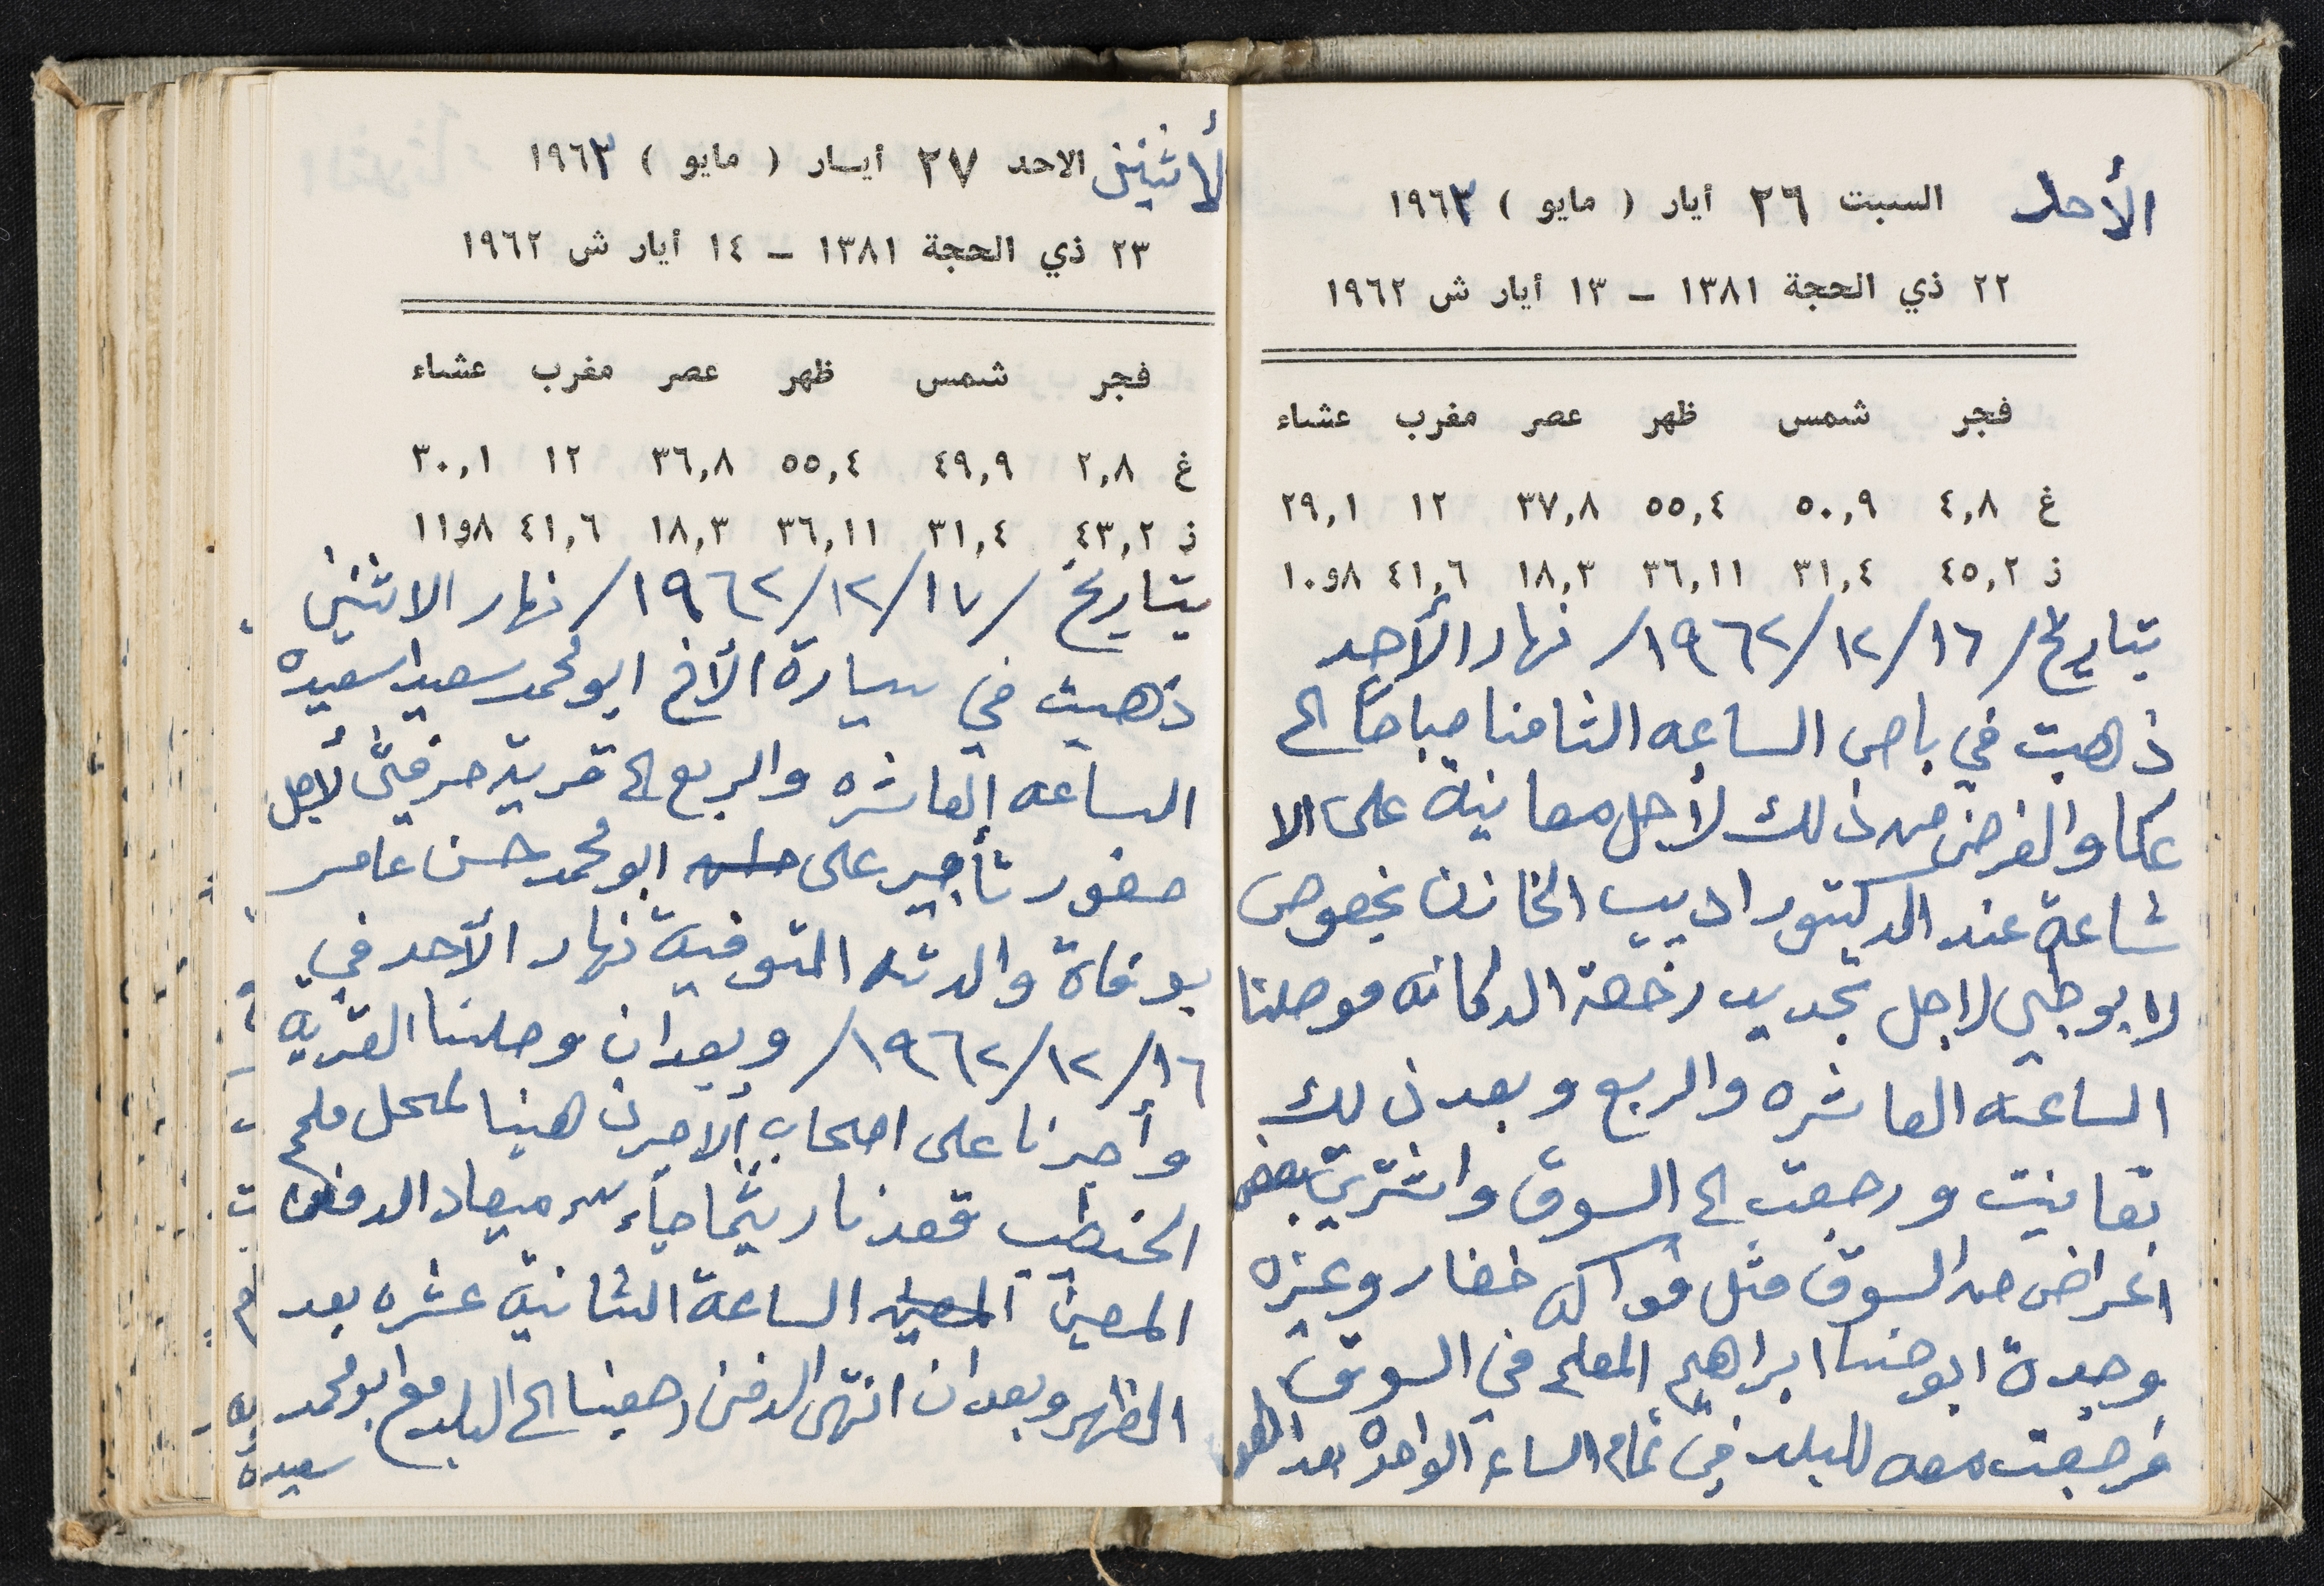 الأحد السبت ٢٦ أيار ( مايو ) ١٩٦٣
٢٢ ذي الحجة ١٣٨١ – ١٣ أيار ش ١٩٦٢
فجر شمس ظهر عصر مغرب عشاء
غ ٤,٨ ٥٠,٩ ٥٥,٤ ٣٧,٨ ١٢ ٢٩,١
ز ٤٥,٢ ٣١,٤ ٣٦,١١ ١٨,٣ ٤١,٦ ٨و١٠
بتاريخ /١٦/١٢/١٩٦٢/ نهار الأحد
ذهبت في باص الساعه الثامنا صباحاً الى
عكا والغرض من ذلك لأجل معاينة على الا
شاعة عند الدكتور اديب الخازن بخصوص
لا بوطي لاجل تجديد رخصة الدكانه فوصلنا
الساعته العاشره والربع وبعد ذلك
تعاينت ورجعت الى السوق واشتريت بعض
اغراض من السوق مثل فواكه خضار وغيره
وجدة ابو حنا ابراهيم المعلم في السوق
فرجعت معه للبلد في تمام الساعه الواحده بعد الظهر
لأثنين الاحد ٢٧ أيار ( مايو ) ١٩٦٣
٢٣ ذي الحجة ١٣٨١ – ١٤ أيار ش ١٩٦٢
فجر شمس ظهر عصر مغرب عشاء
غ ٢,٨ ٤٩,٩ ٥٥,٤ ٣٦,٨ ١٢ ٣٠,١
ز ٤٣,٢ ٣١,٤ ٣٦,١١ ١٨,٣ ٤١,٦ ٨و١١
بتاريخ /١٧/١٢/١٩٦٢/ نهار الاثنين
ذهبت في سيارة الأخ ابو محمد سعيد اسعيده
الساعه العاشره والربع الى قرية حرفيش لأجل
حضور تأجير على ابو محمد حسن عامر
بوفاة والدته المتوفية نهار الأحد في
١٦/١٢/١٩٦٢/ وبعد ان وصلنا القريه
وأجرنا على اصحاب الاجر ذهبنا لمحل ملحم
الخطيب قعدنا ريثما جاء ميعاد الدفن
المعين المعين الساعة الثانية عشره بعد
الظهر وبعد ان انتهى الدفن رجعنا الى البلد مع ابو محمد
سعيدة